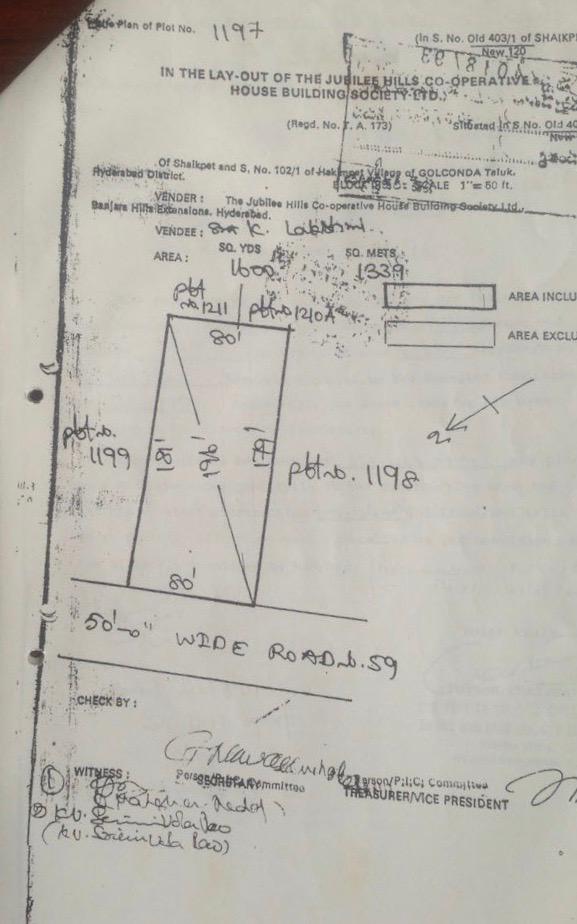 Plan of Plot No. 1197
(In S. No. Old 403/1 of SHAIKP
New 120
IN THE LAY-OUT OF THE JUBILEE HILLS CO-OPERATIVE
HOUSE BUILDING SOCIETY LTD.,
(Regd. No. T. A. 173) Situated in S. No. Old 40
New
Of Shaikpet and S. No. 102/1 of Hakimpet Village of GOLCONDA Taluk.
Hyderabad District. SCALE 1"= 50 ft.
VENDER : The Jubilee Hills Co-operative House Building Society Ltd.,
Banjara Hills Extensions, Hyderabad.
VENDEE : K. Lakshmi
SQ. YDS SQ. METS
AREA : 1600 1339
AREA INCLU
AREA EXCLU
plot no 1211 plot no 1210A
80'
plot no. 1199
181' 196' 179'
plot no. 1198
N
80'
50'-0" WIDE ROAD No. 59
CHECK BY :
WITNESS :
Person/P.I.C. Committee
SECRETARY
Person/P.I.C. Committee
TREASURER/VICE PRESIDENT